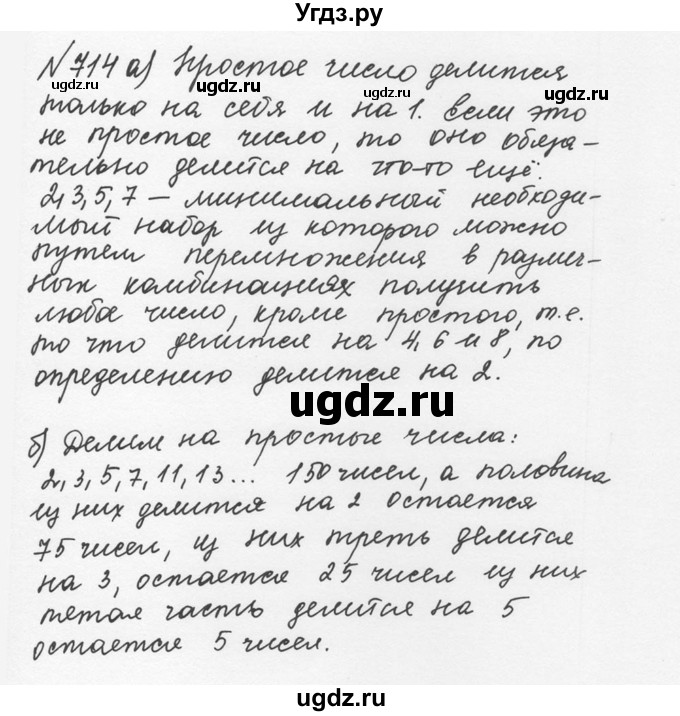 Угдз.ру
№714 а) Простое число делится
только на себя и на 1. если это
не простое число, то оно обяза-
тельно делится на что-то ещё.
2,3,5,7 – минимальный необходи-
мый набор из которого можно
путем перемножения в различ-
ных комбинациях получить
любое число, кроме простого, т.е.
то что делится на 4, 6 и 8, по
определению делится на 2.
б) Делим на простые числа:
2, 3, 5, 7, 11, 13... 150 чисел, а половина
из них делится на 2 остается
75 чисел, из них треть делится
на 3, остается 25 чисел из них
пятая часть делится на 5
остается 5 чисел.
ugdz.ru ugdz.ru ugdz.ru
ugdz.ru ugdz.ru ugdz.ru
ugdz.ru
ugdz.ru